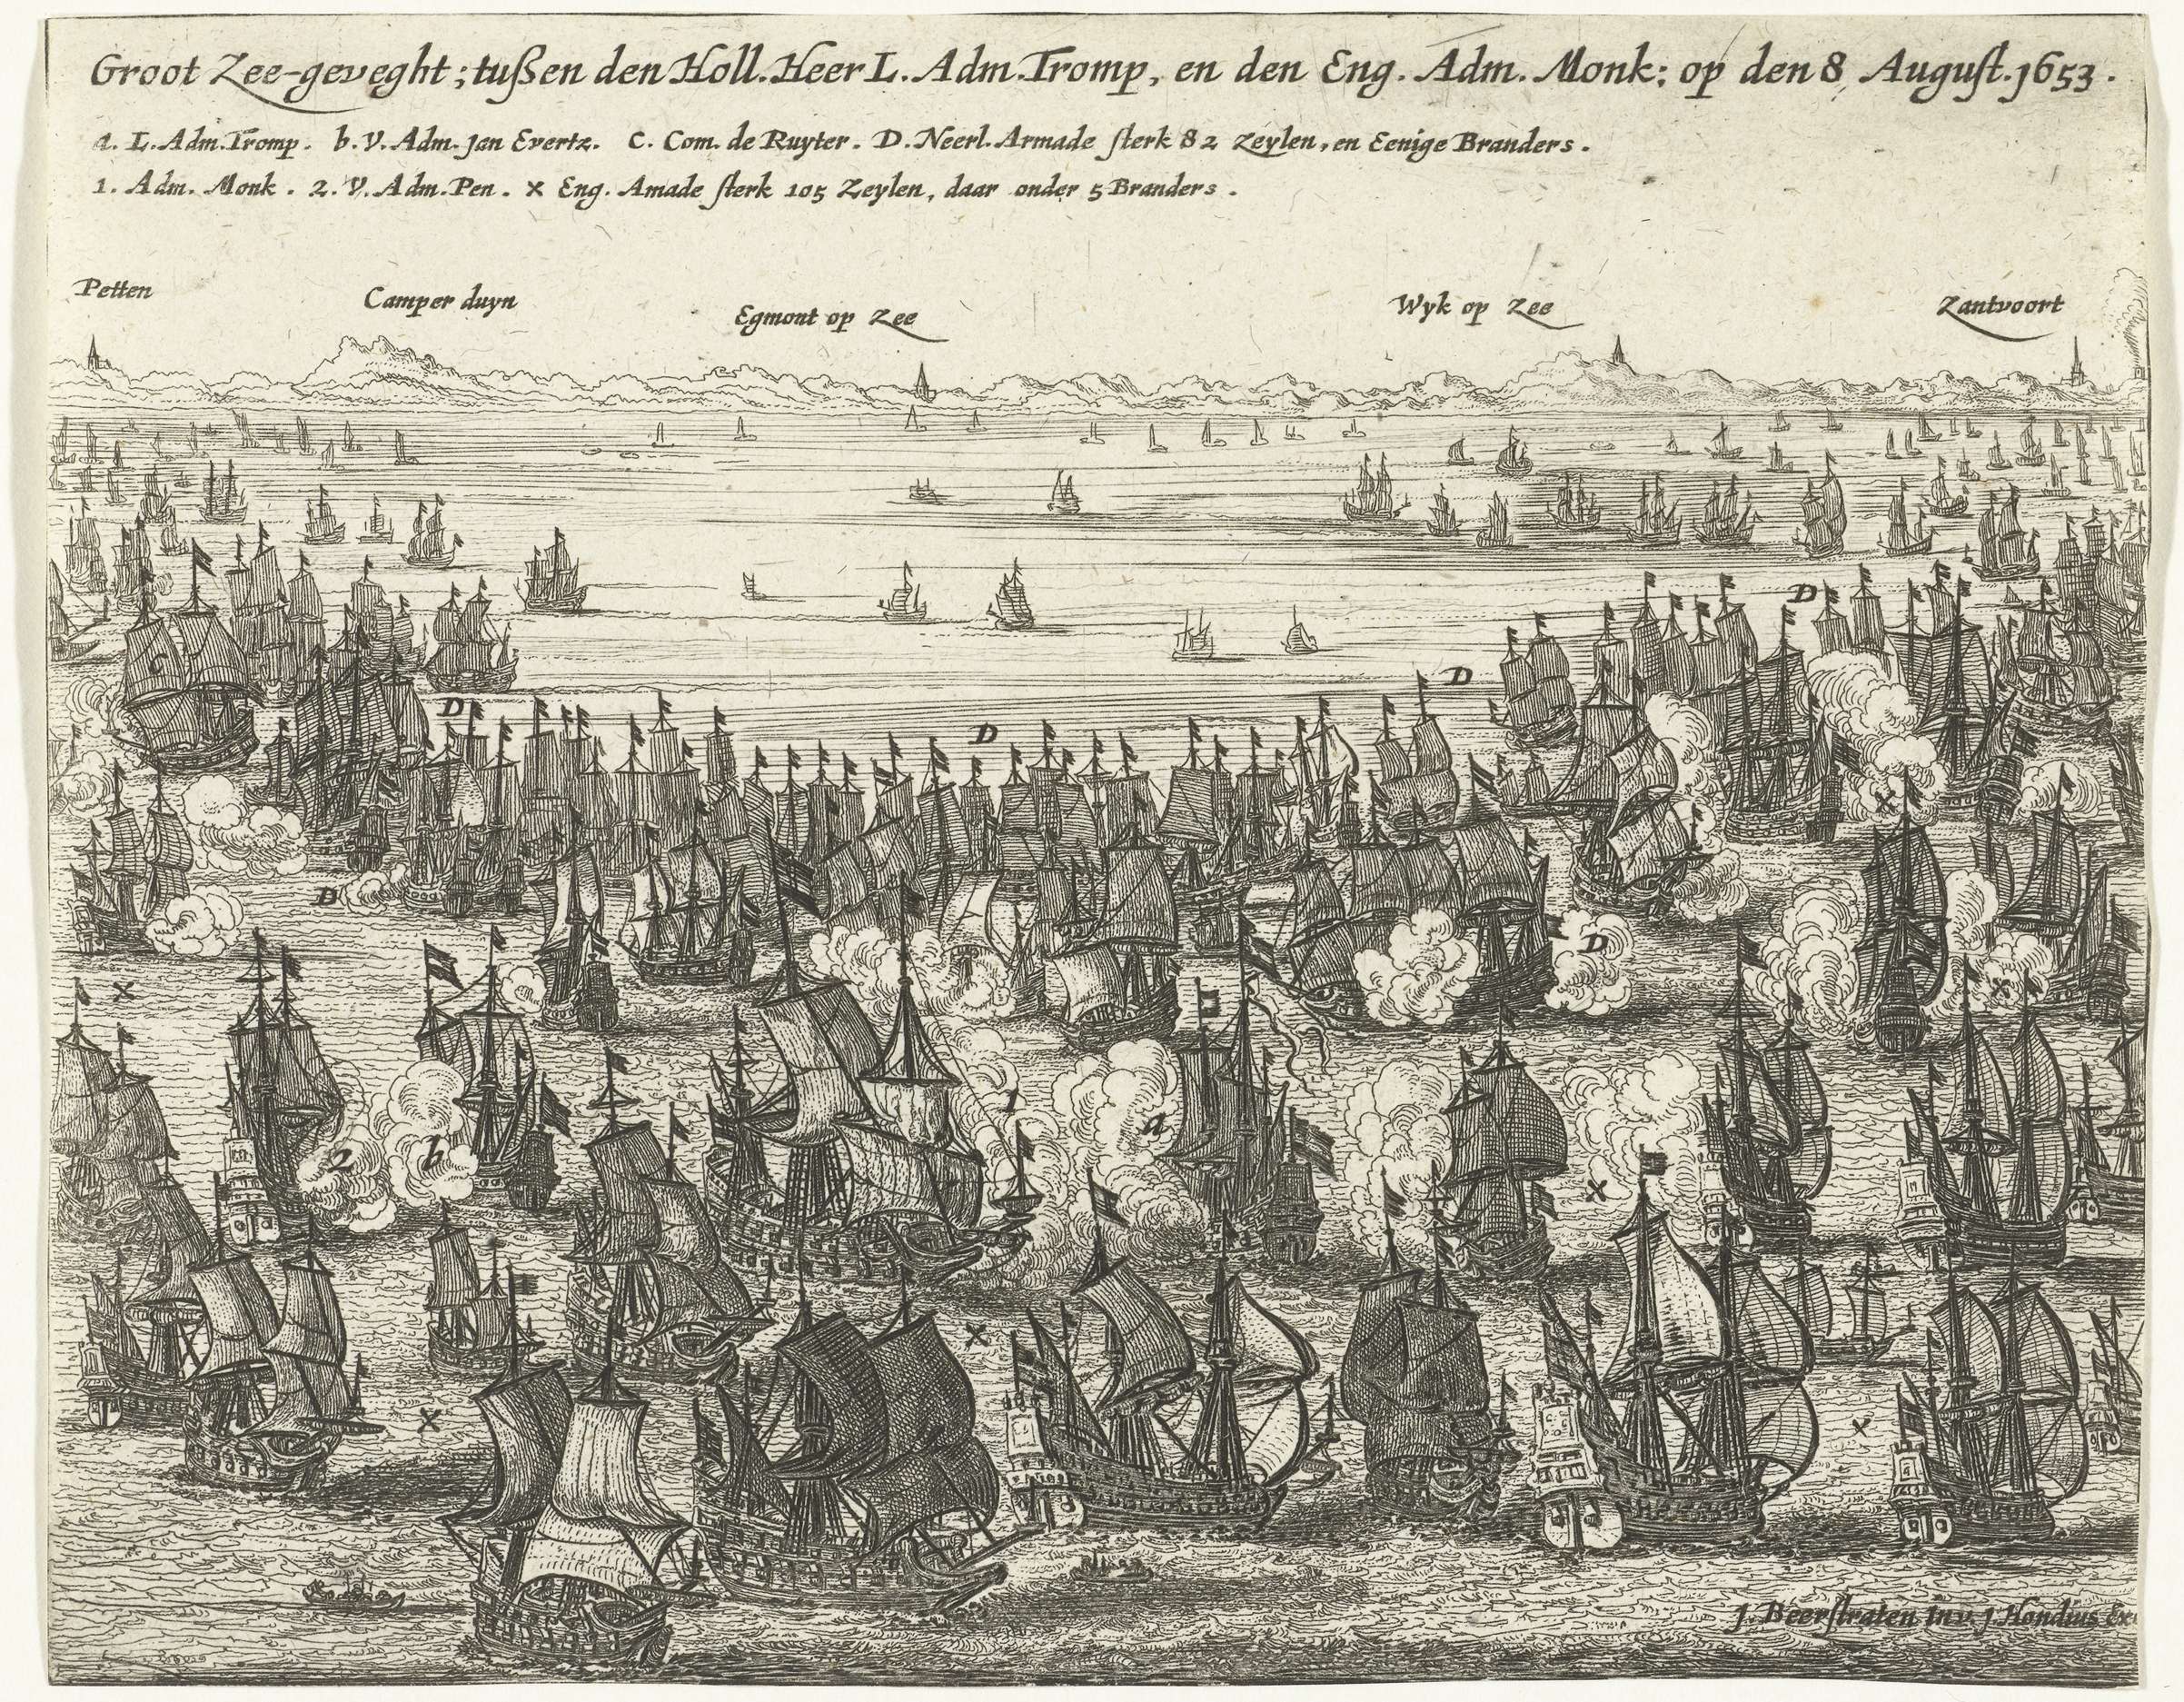 Groot Zee-geveght; tußen den Holl. Heer L. Adm. Tromp, en den Eng. Adm. Monk; op den 8 August. 1653.
a. L. Adm. Tromp. b. V. Adm. Jan Evertz. C. Com. de Ruyter. D. Neerl. Armade sterk 82 Zeylen, en Eenige Branders.
1. Adm. Monk. 2. V. Adm. Pen. x Eng. Amade sterk 105 Zeylen, daar onder 5 Branders.
Petten
Camper duyn
Egmont op Zee
Wyk op Zee
Zantvoort
D
C
D
D
D
x
D
D
x
x
1
a
2
b
x
x
x
x
J. Beerstraten Inv. J. Hondius Ex